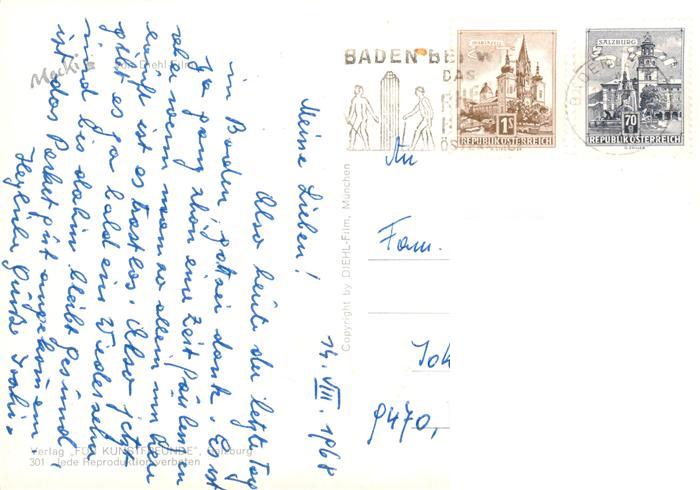 14. VIII. 1968
Meine Lieben!
Also heute der letzte Tag
in Baden gott sei dank. Es ist
ja ganz schön eine Zeit
aber wenn man so allein
ist es trostlos. Also jetzt
gibt es ja bald ein Wiedersehn
und bis dahin bleibt gesund,
ist das Packet gut angekommen
Herzliche Grüße
Mecki
Diehl-Film
Verlag „FÜR KUNSTFREUNDE",
301 - Jede Reproduktion verboten
Copyright by DIEHL-Film, München
BADEN BEI W
DAS
MARIAZELL
1S
REPUBLIK ÖSTERREICH
SALZBURG
70
REPUBLIK ÖSTERREICH
BADEN
An
Fam.
Joh
9470,